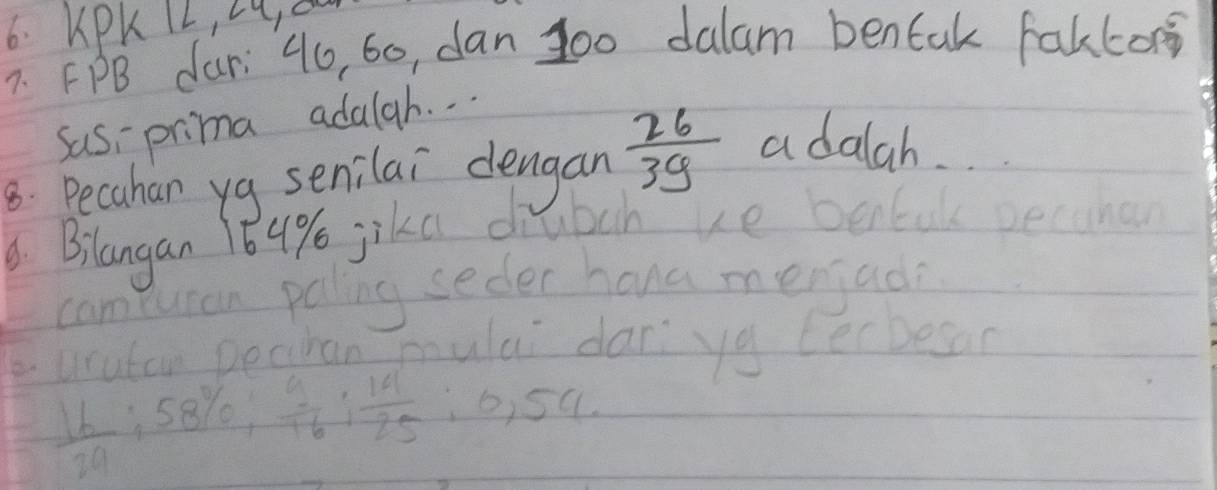 6. KPK 12, 24,
7. FPB dari 40, 60, dan 100 dalam bentuk faktori
sasi prima adalah...
8. Pecahan yg senilai dengan 26/39 adalah...
9. Bilangan 164% jika diubah ke bentuk pecahan
campuran paling sederhana menjadi...
urutan pecahan mulai dari yg terbesar
16/29 ; 58% ; 9/16 ; 14/25 ; 0,59.